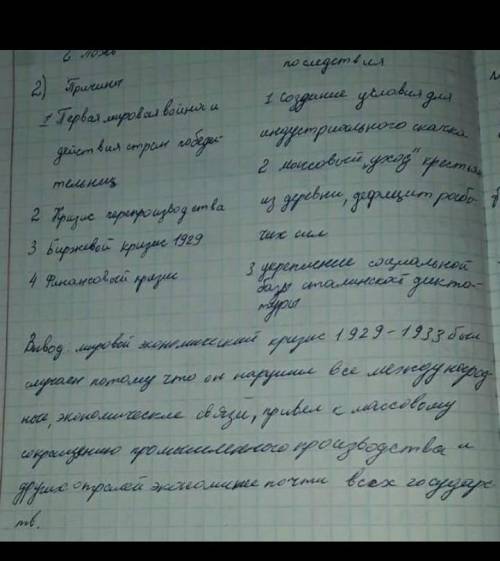 2 ложь
2) Причины
1 Первая мировая война и
действия стран победи-
тельниц
2 Кризис перепроизводства
3 Биржевой кризис 1929
4 Финансовый кризис
последствия
1 Создание условия для
индустриального скачка
2 массовый „уход" крестьян
из деревни, дефицит рабо-
чих сил
3 укрепление социальной
базы сталинской дикта-
туры
Вывод мировой экономический кризис 1929-1933 был
случаен потому что он нарушил все международ
ные, экономическе связи, привел к массовому
сокращению промышленного производства и
других отралей экономике почти всех государс
тв.